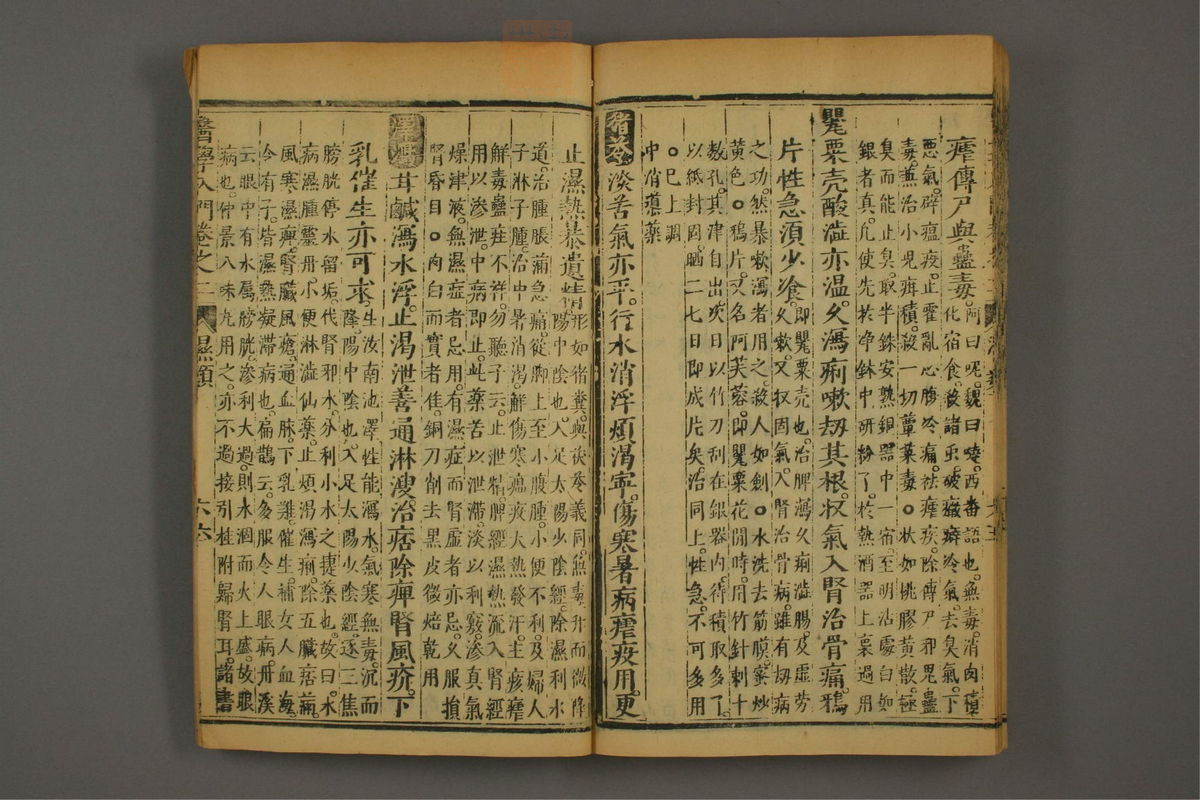 瘧傳尸與蠱毒阿曰呢魏曰喹西番語也無毒消肉積
惡氣辟瘟疫止霍亂心腹冷痛祛瘧疾除傳尸邪鬼蠱
化宿食殺諸虫破癥癖冷氣去臭氣下
毒兼治小兒疳積殺一切蕈菜毒○狀如桃膠黃散極
臭而能止臭取半銖安熟銅器中一宿至明沾處白如
銀者真凡使先於淨鉢中研粉了於熱酒器上裛過用
罌粟壳酸澁亦温久瀉痢嗽劫其根收氣入腎治骨痛鴉
片性急須少飡即罌粟壳也治脾瀉久痢澁腸及虛劳
久嗽又收固氣入腎治骨病雖有劫病
之功然暴嗽瀉者用之殺人如劍○水洗去筋膜蜜炒
黃色○鴉片又名阿芙蓉即罌粟花開時用竹針刺十
数孔其津自出次日以竹刀刮在銀器內待積取多了
以紙封固晒二七日即成片矣治同上性急不可多用
○巳上調
中消導藥
猪苓淡苦氣亦平行水消浮煩渴寧傷寒暑病瘧疫用更
止濕熱暴遺精形如猪糞與茯苓義同無毒升而微降
陽中陰也入足太陽少陰經除濕利水
道治腫脹滿急痛從脚上至小腹腫小便不利及婦人
子淋子腫治中暑消渴解傷寒瘟疫大熱發汗主痎瘧
解毒蠱疰不祥勿聽子云止泄精脾經濕熱流入腎經
用以滲泄中病即止此藥苦以泄滯淡以利竅滲真氣
燥津液無濕症者忌用有濕症而腎虛者亦忌久服損
腎昏目○肉白而實者佳銅刀削去黑皮微焙乾用
澤瀉甘鹹瀉水浮止渴泄善通淋溲治痞除痺腎風疥下
乳催生亦可求生汝南池澤性能瀉水氣寒無毒沉而
降陽中陰也入足太陽少陰經逐三焦
膀胱停水留垢代腎邪水分利小水之捷藥也故曰水
病濕腫靈丹小便淋澁仙藥止煩渴瀉痢除五臟痞滿
風寒濕痺腎臟風瘡通血脉下乳難催生補女人血海
令有子皆濕熱凝滯病也扁鵲云多服令人眼病丹溪
云眼中有水屬膀胱滲利大過則水涸而火上盛故眼
病也仲景八味丸用之亦不過接引桂附歸腎耳諸書
醫學入門卷之二 濕類 六六